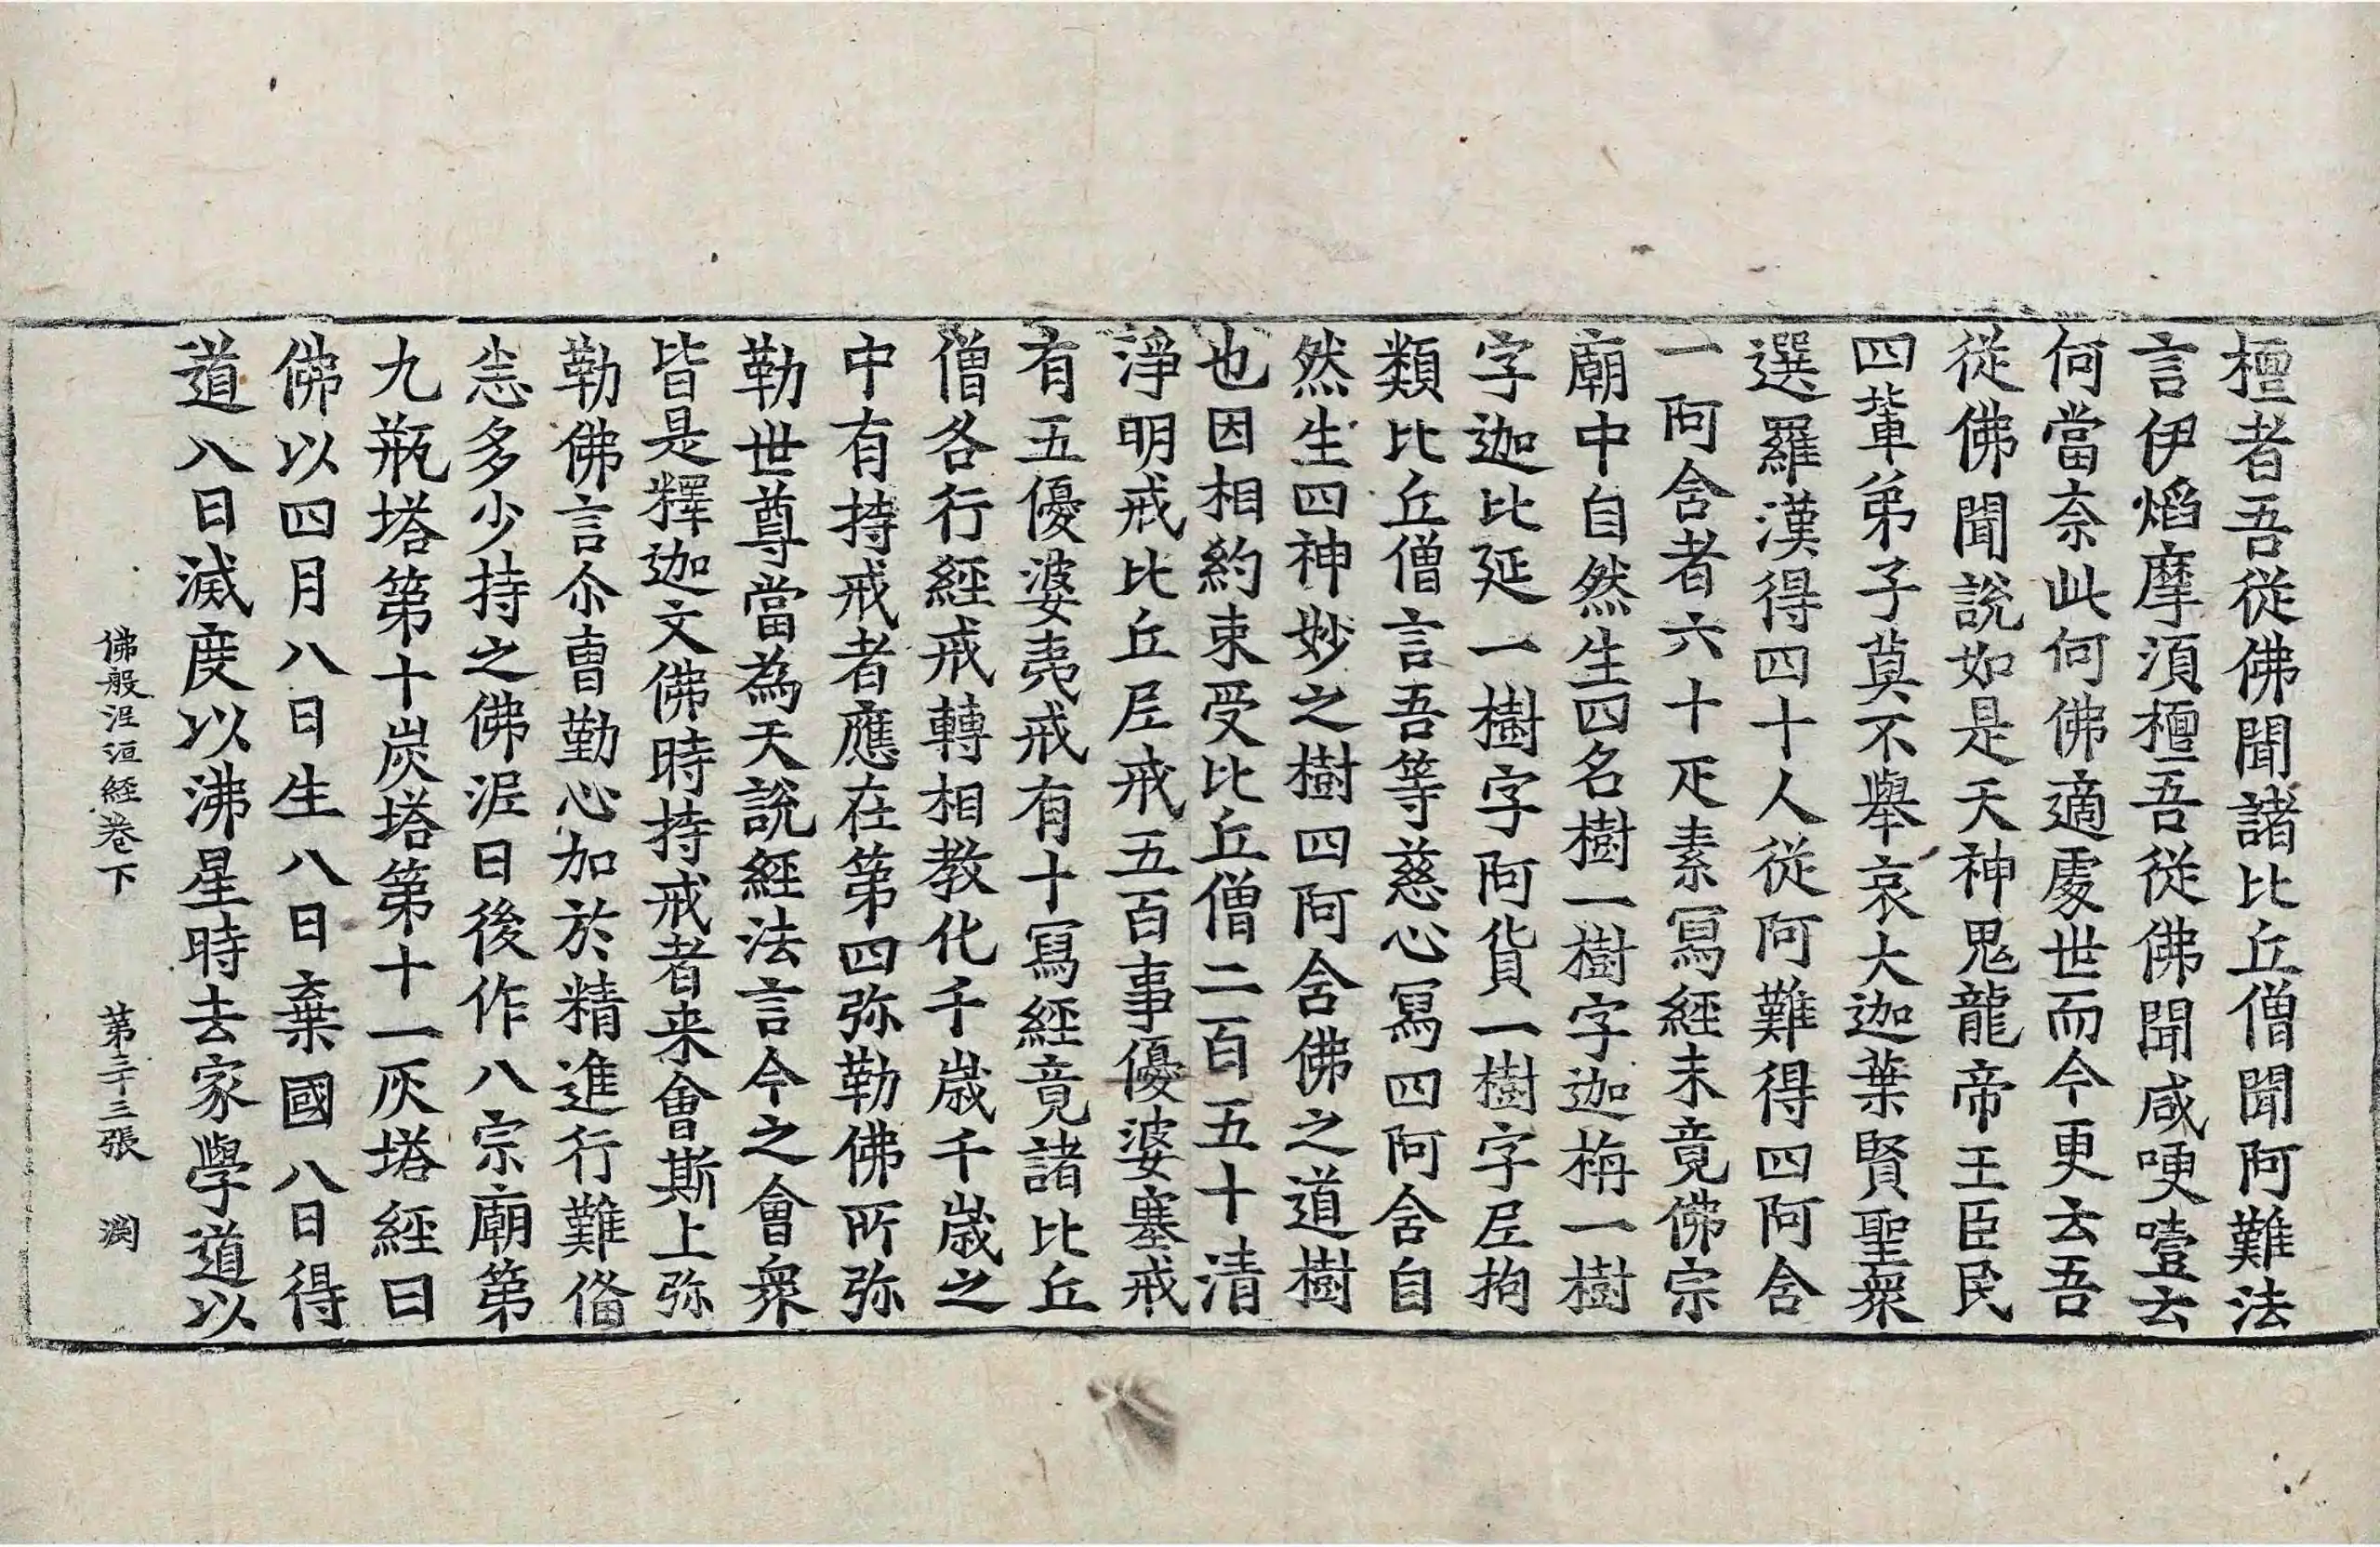 檀者吾從佛聞諸比丘僧聞阿難法
言伊焰摩湏檀吾從佛聞咸哽噎去
何當奈此何佛適處世而今更去吾
從佛聞說如是天神鬼龍帝王臣民
四軰弟子莫不舉哀大迦葉賢聖衆
選羅漢得四十人從阿難得四阿含
一阿含者六十疋素冩經未竟佛宗
廟中自然生四名樹一樹字迦栴一樹
字迦比延一樹字阿貨一樹字𡰱拘
類比丘僧言吾等慈心冩四阿含自
然生四神妙之樹四阿含佛之道樹
也因相約束受比丘僧二百五十清
淨明戒比丘𡰱戒五百事優婆塞戒
有五優婆夷戒有十冩經竟諸比丘
僧各行經戒轉相教化千歲千歲之
中有持戒者應在第四弥勒佛所弥
勒世尊當為天說經法言今之會衆
皆是釋迦文佛時持戒者来會斯上弥
勒佛言尒曺勤心加於精進行難俻
恣多少持之佛泥曰後作八宗廟第
九瓶塔第十炭塔第十一灰塔經曰
佛以四月八日生八日棄國八日得
道八日滅度以沸星時去家學道以
佛般泥洹經卷下 第三十三張 渕